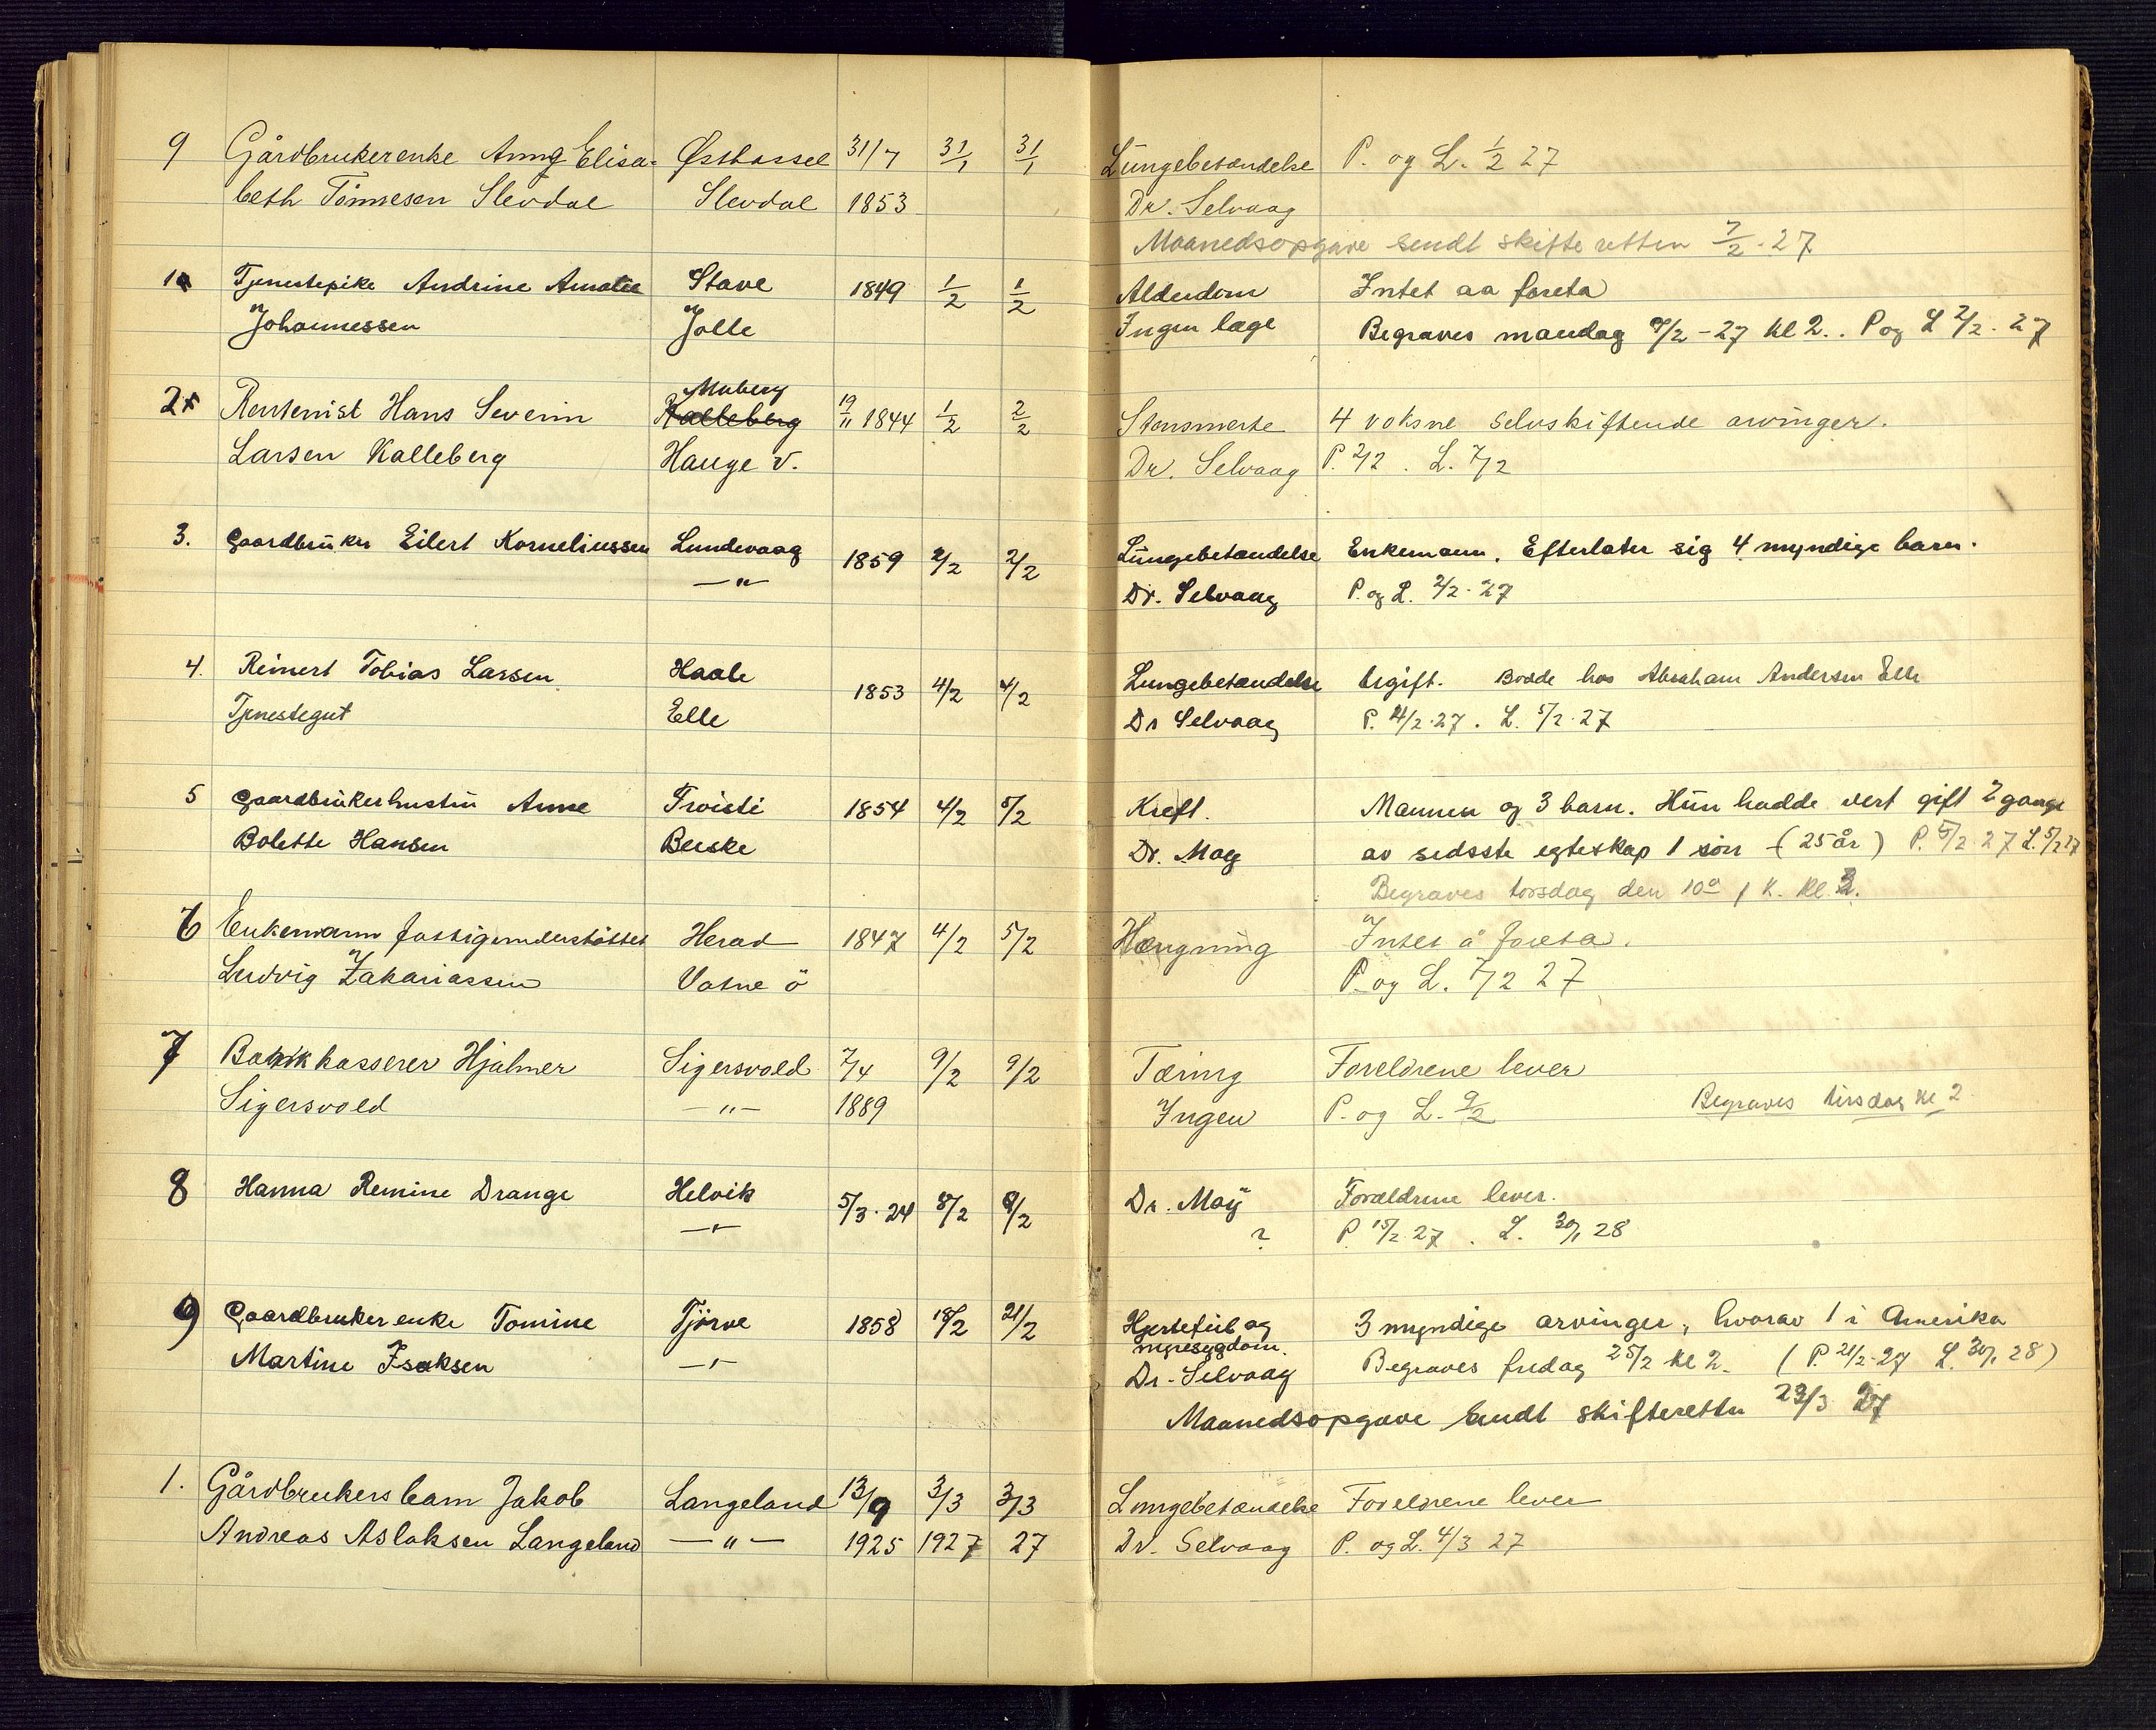 9 Gårdbrukerenke Anna Elisa- Østhassel 31/7 31/1 31/1 Lungebetændelse P. og L. 1/2 27
beth Tönnesen Slevdal Slevdal 1853 Dr. Selvaag
Maanedsopgave sendt skifteretten 7/2 - 27
1 Tjenestepike Andrine Amalie Stave 1849 1/2 1/2 Alderdom Intet aa foreta
Johannessen Jolle Ingen læge Begraves mandag 7/2 - 27 kl 2. P og L 2/2. 27
Muberg
2 Rentenist Hans Severin Kalleberg 19/11 1844 1/2 2/2 Stensmerte 4 voksne selvskiftende arvinger.
Larsen Kalleberg Hauge V. Dr. Selvaag P. 2/2. L. 7/2
3. Gaardbruker Eilert Korneliussen Lundevaag 1859 2/2 2/2 Lungebetændelse Enkemann. Efterlater sig 4 myndige barn.
—"— Dr. Selvaag P. og L. 2/2. 27
4. Reinert Tobias Larsen Haale 1853 4/2 4/2 Lungebetændelse Ugift. Bodde hos Abraham Andersen Elle
Tjenestegut Elle Dr Selvaag P. 4/2. 27. L. 5/2. 27
5 Gaardbrukerhustru Anne Tvoisti 1854 4/2 5/2 Kreft. Mannen og 3 barn. Hun hadde vert gift 2 gange
Bolette Hansen Beiske Dr. May av sedsste egteskap 1 sön (25 år) P. 5/2. 27 L. 5/2 27
Begraves torsdag den 10de K. kl 2.
6 Enkemann fattigunderstöttet Herad 1847 4/2 5/2 Hængning Intet å foreta.
Ludvig Zakariassen Vatne ö P. og L. 7/2 27
7 Bankkasserer Hjalmer Sigersvold 7/4 9/2 9/2 Tæring Foreldrene lever
Sigersvold —"— 1889 Ingen P. og L. 9/2 Begraves tirsdag kl 2
8 Hanna Remine Drange Helvik 5/3. 24 8/2 8/2 Dr. May Forældrene lever.
—"— ? P. 15/2. 27. L. 30/1 28
9 Gaardbrukerenke Tomine Tjörve 1858 18/2 21/2 Hjertefeil og 3 myndige arvinger, hvorav 1 i Amerika
nyresygdom.
Martine Isaksen —"— Dr. Selvaag Begraves fredag 25/2 kl 2. (P. 21/2. 27 L. 30/1 28)
Maanedsopgave sendt skifteretten 23/3 27
1. Gårdbrukers barn Jakob Langeland 13/9 3/3 3/3 Lungebetændelse Foreldrene lever
Andreas Aslaksen Langeland —"— 1925 1927 27 Dr. Selvaag P. og L. 4/3 27